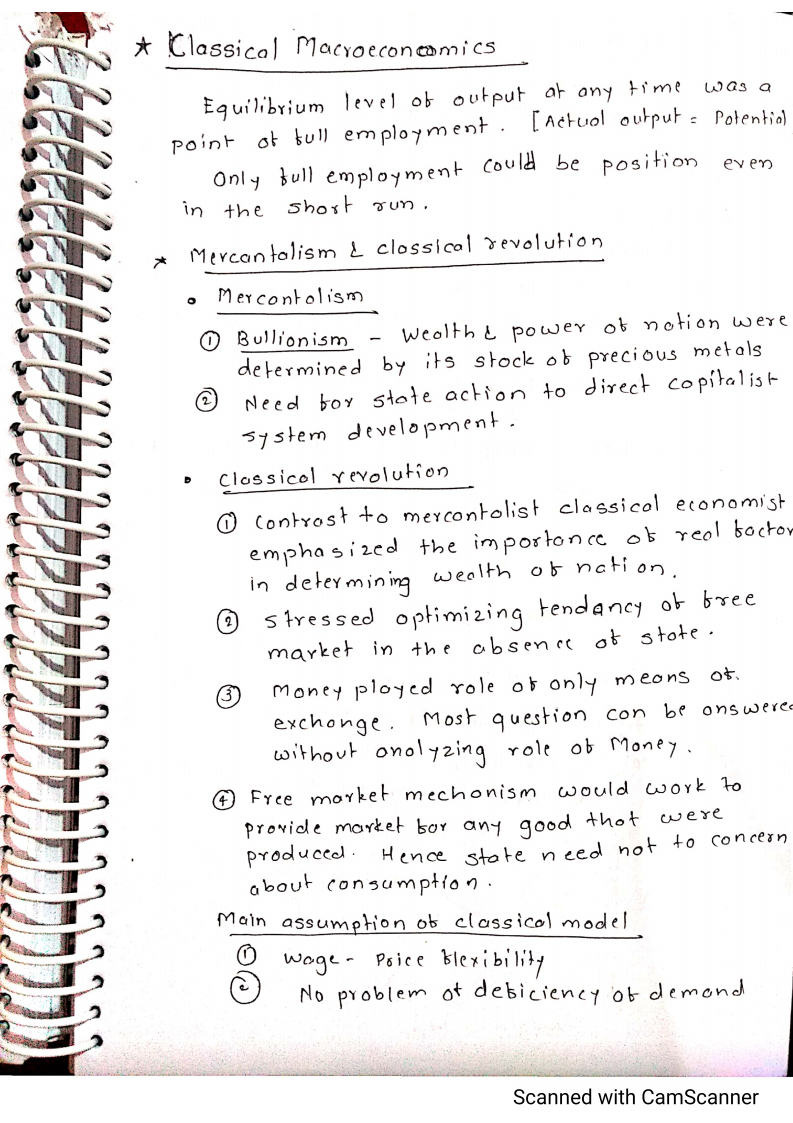 * Classical Macroeconomics
Equilibrium level of output at any time was a
point of full employment. [Actual output = Potential
Only full employment could be position even
in the short run.
* Mercantalism & classical revolution
• Mercantalism
① Bullionism - Wealth & power of nation were
determined by its stock of precious metals
② Need for state action to direct capitalist
system development.
• Classical revolution
① Contrast to mercantalist classical economist
emphasized the importance of real factor
in determining wealth of nation.
② Stressed optimizing tendancy of free
market in the absence of state.
③ Money played role of only means of
exchange. Most question can be answered
without analyzing role of Money.
④ Free market mechanism would work to
provide market for any good that were
produced. Hence state need not to concern
about consumption.
Main assumption of classical model
① Wage - Price flexibility
② No problem of deficiency of demand
Scanned with CamScanner